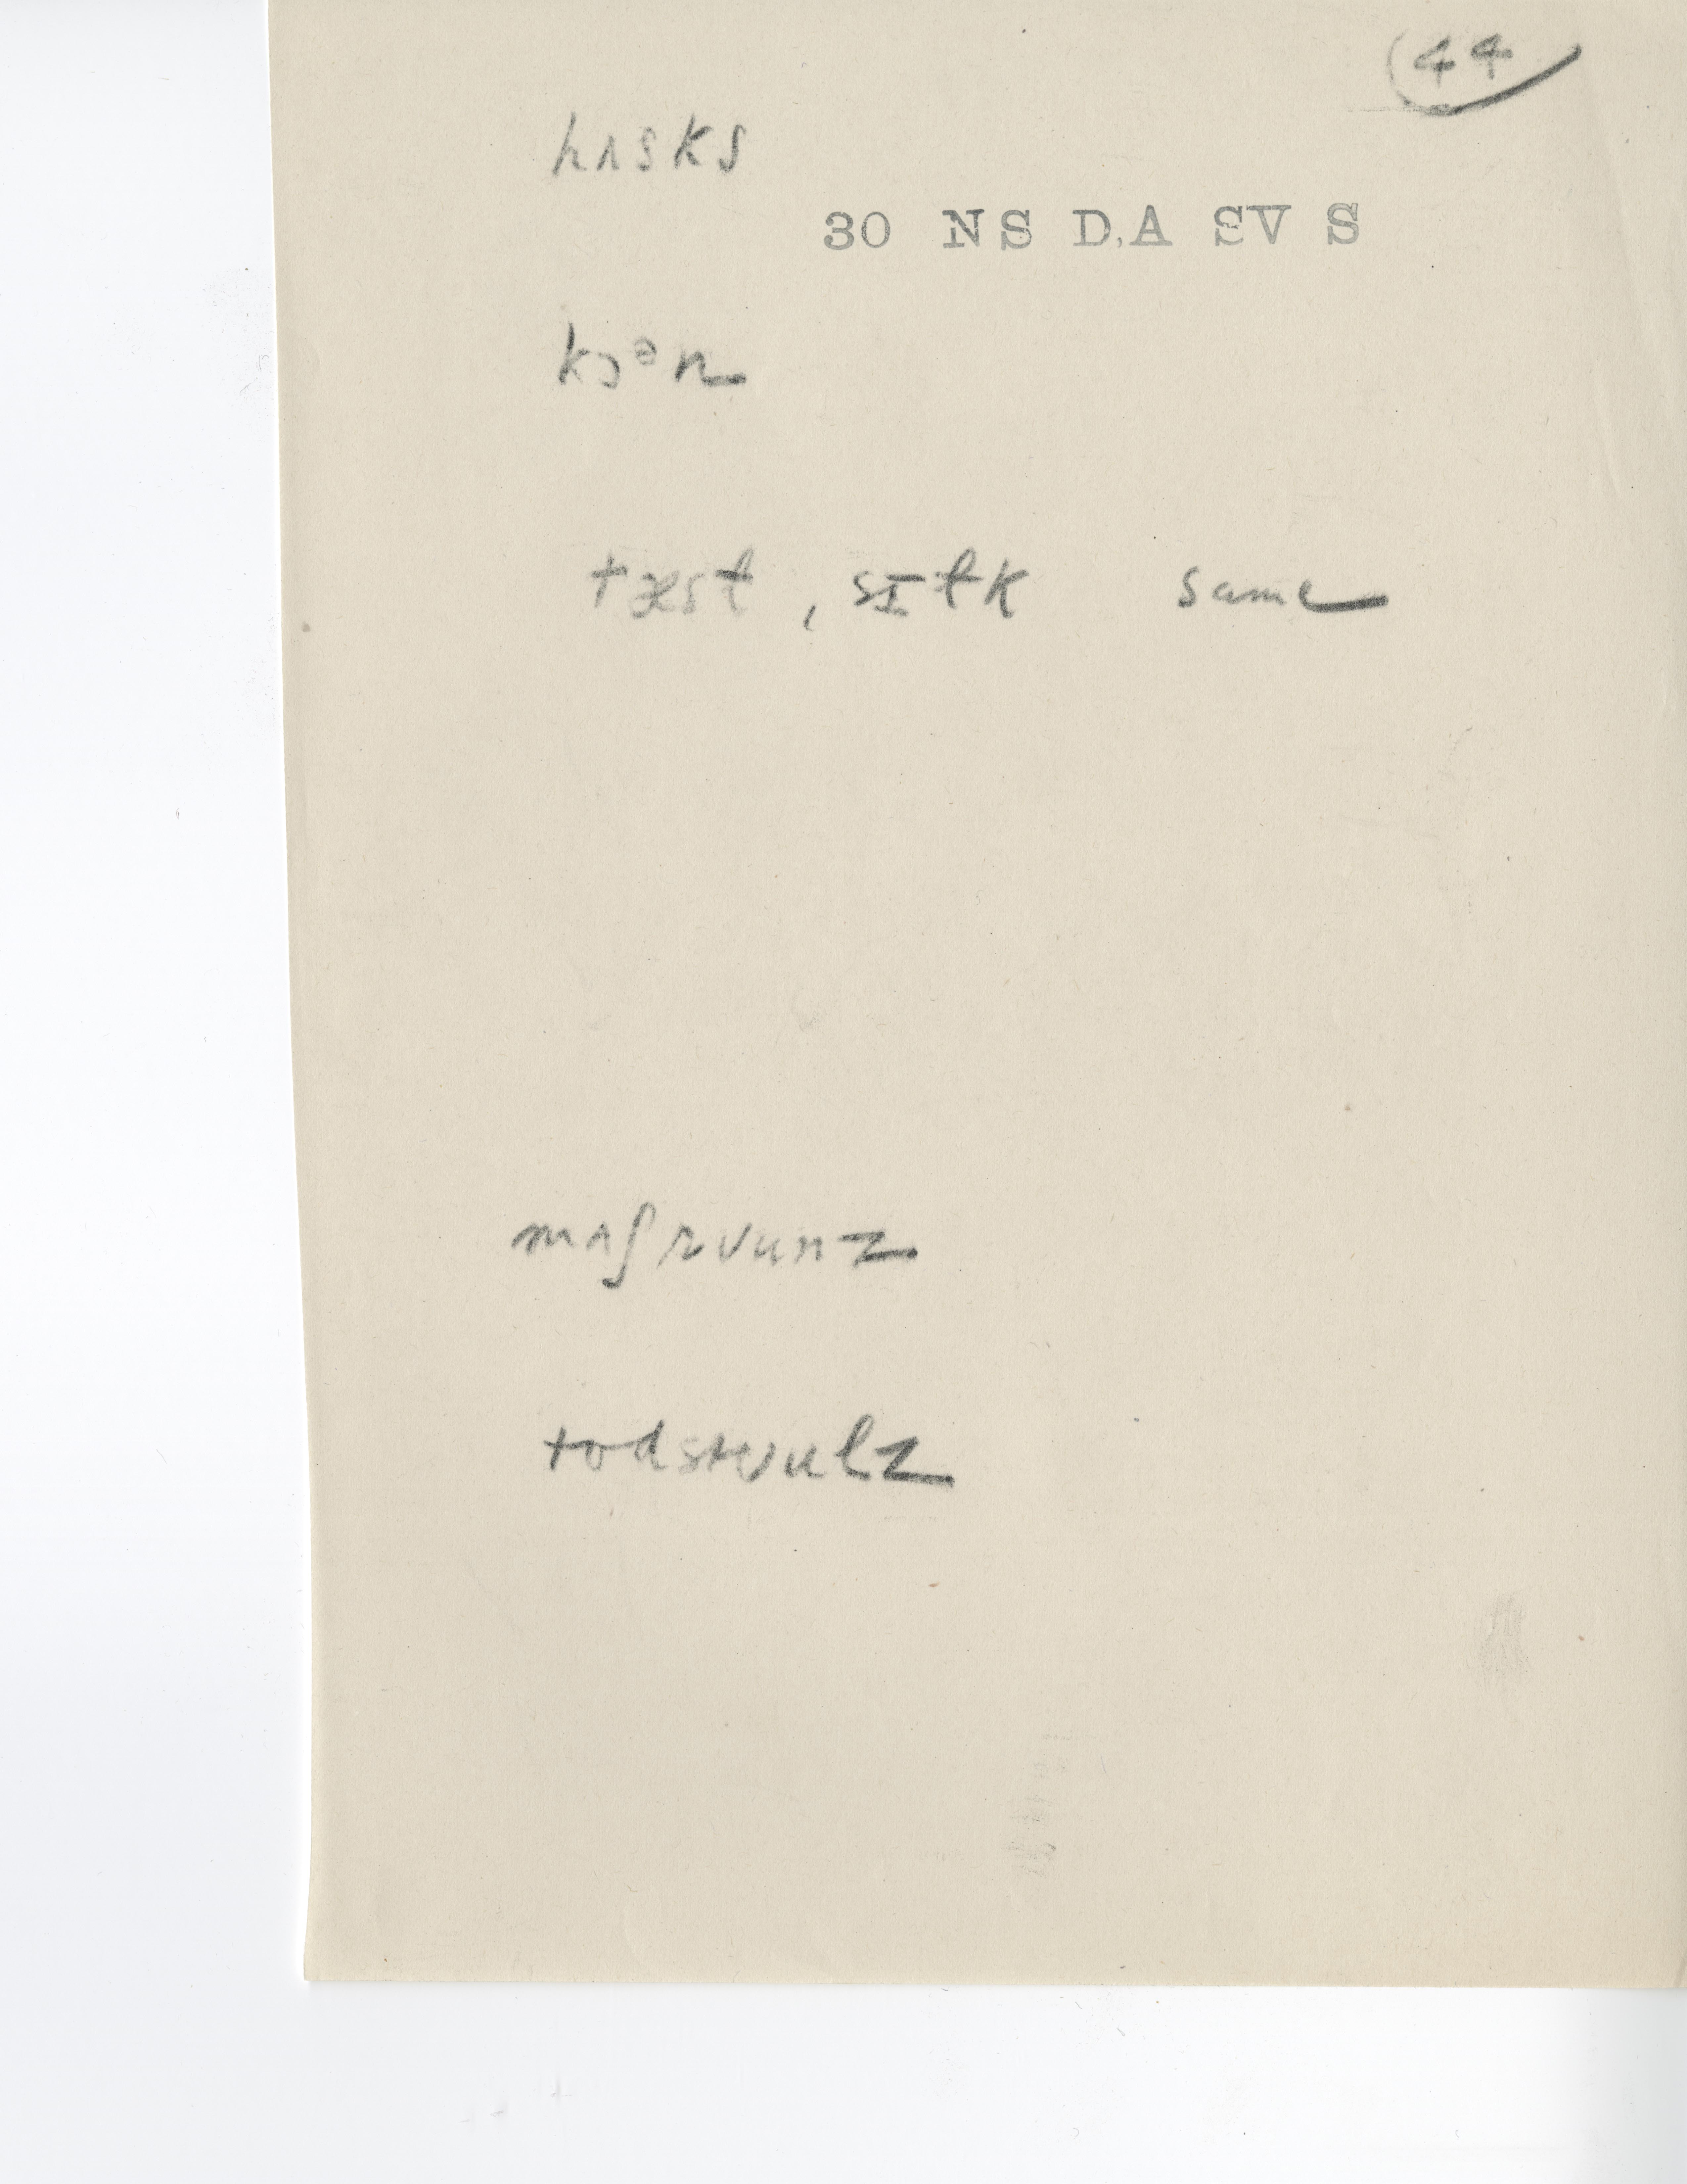 44
hʌsks
30 NS D.A SV S
kɔᵊn
tæst, sɪɫk same
mʌʃrumz
todstulz